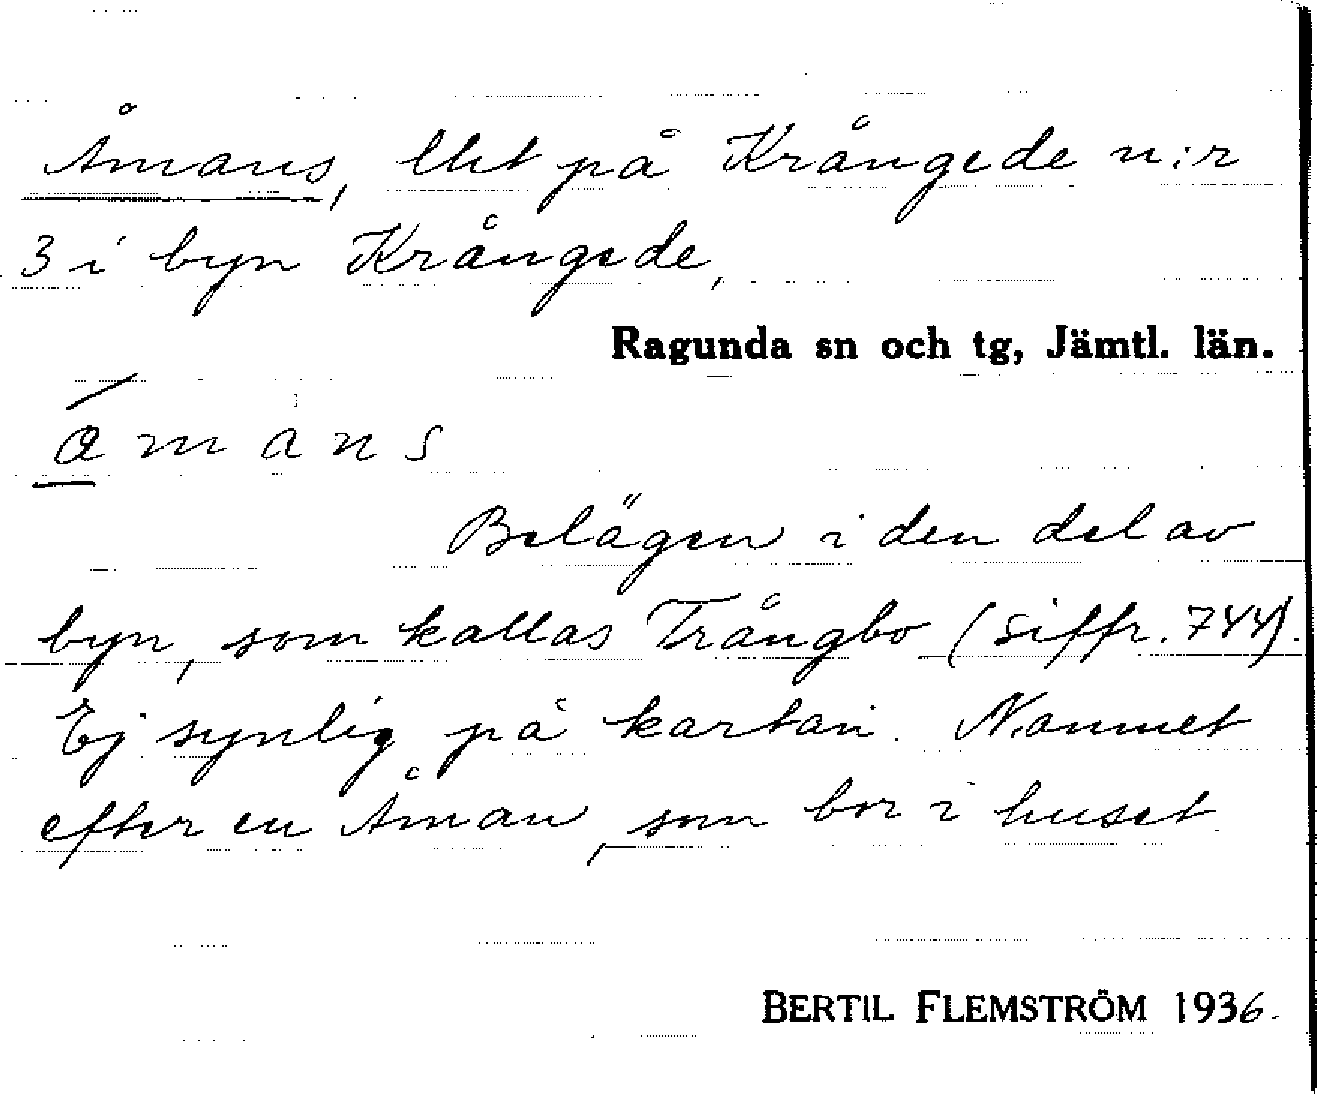 Åmans, lht på Krångede n:r
3 i byn Krångede,
Ragunda sn och tg, Jämtl. län.
a m a n s
Belägen i den del av
byn, som kallas Trångbo (siffr. 744).
Ej synlig på kartan. Namnet
efter en Åman, som bor i huset
BERTIL FLEMSTRÖM 1936.